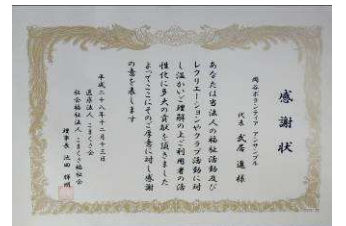 感謝状
岡谷ボランティア アンサンブル
代表 武居 進様
あなたは当法人の福祉活動及び
レクリエーションやクラブ活動に対
し温かいご理解の上ご利用者の活
性化に多大の貢献を頂きました
よってここにそのご厚意に対し感謝
の意を表します
平成二十八年十二月十三日
医療法人 こまくさ会
社会福祉法人 こまくさ福祉会
理事長 池田 輝明